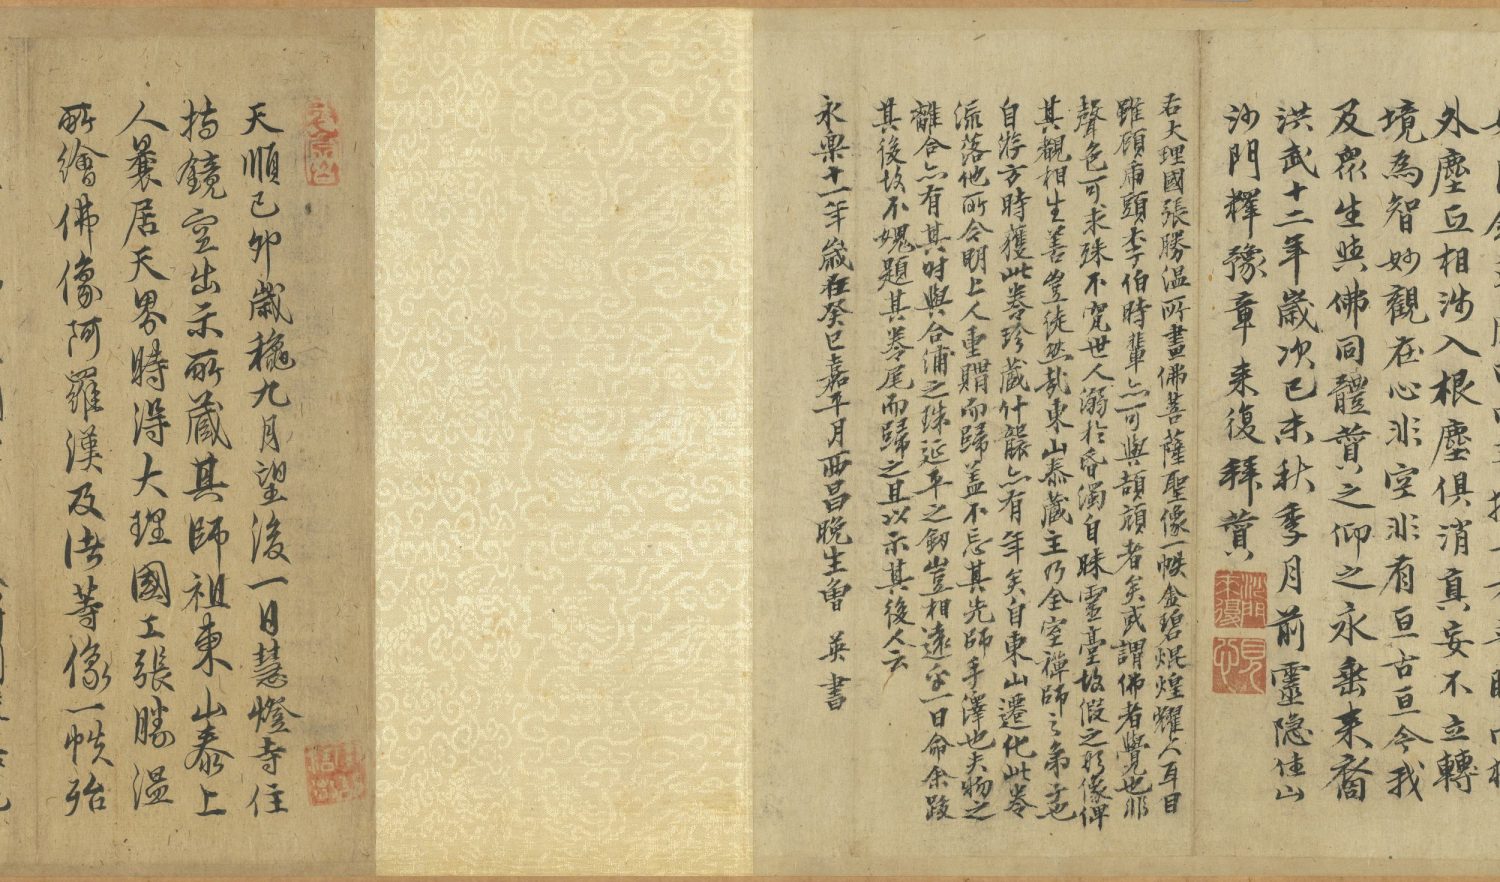 外塵互相涉入根塵俱消真妄不立轉
境為智妙觀在心非空非有亘古亘今我
及眾生與佛同體贊之仰之永垂来裔
洪武十二年歲次已未秋季月前靈隐住山
沙門釋豫章来復拜贊
沙門
来復
見心
右大理國張勝温所畫佛菩薩聖像一帙金碧焜煌耀人耳目
雖顧虎頭李伯時輩亦可與頡頏者矣或謂佛者覺也非
聲色可求殊不究世人溺於昏濁自昧靈臺故假之形像俾
其觀相生善豈徒然哉東山泰藏主乃全室禪師之弟子也
自游方時獲此卷珍蔵什襲亦有年矣自東山遷化此卷
流落他所今明上人重贖而歸盖不忘其先師手澤也夫物之
離合亦有其时與合浦之珠延平之劔豈相遠乎一日命余跋
其後故不媿題其卷尾而歸之且以示其後人云
永樂十一年歲在癸巳嘉平月西昌晚生曾英書
天順己卯歲穐九月望後一日慧燈寺住
持鏡空出示所蔵其師祖東山泰上
人曩居天界時淂大理國工張勝温
所繪佛像阿羅漢及諸等像一帙殆